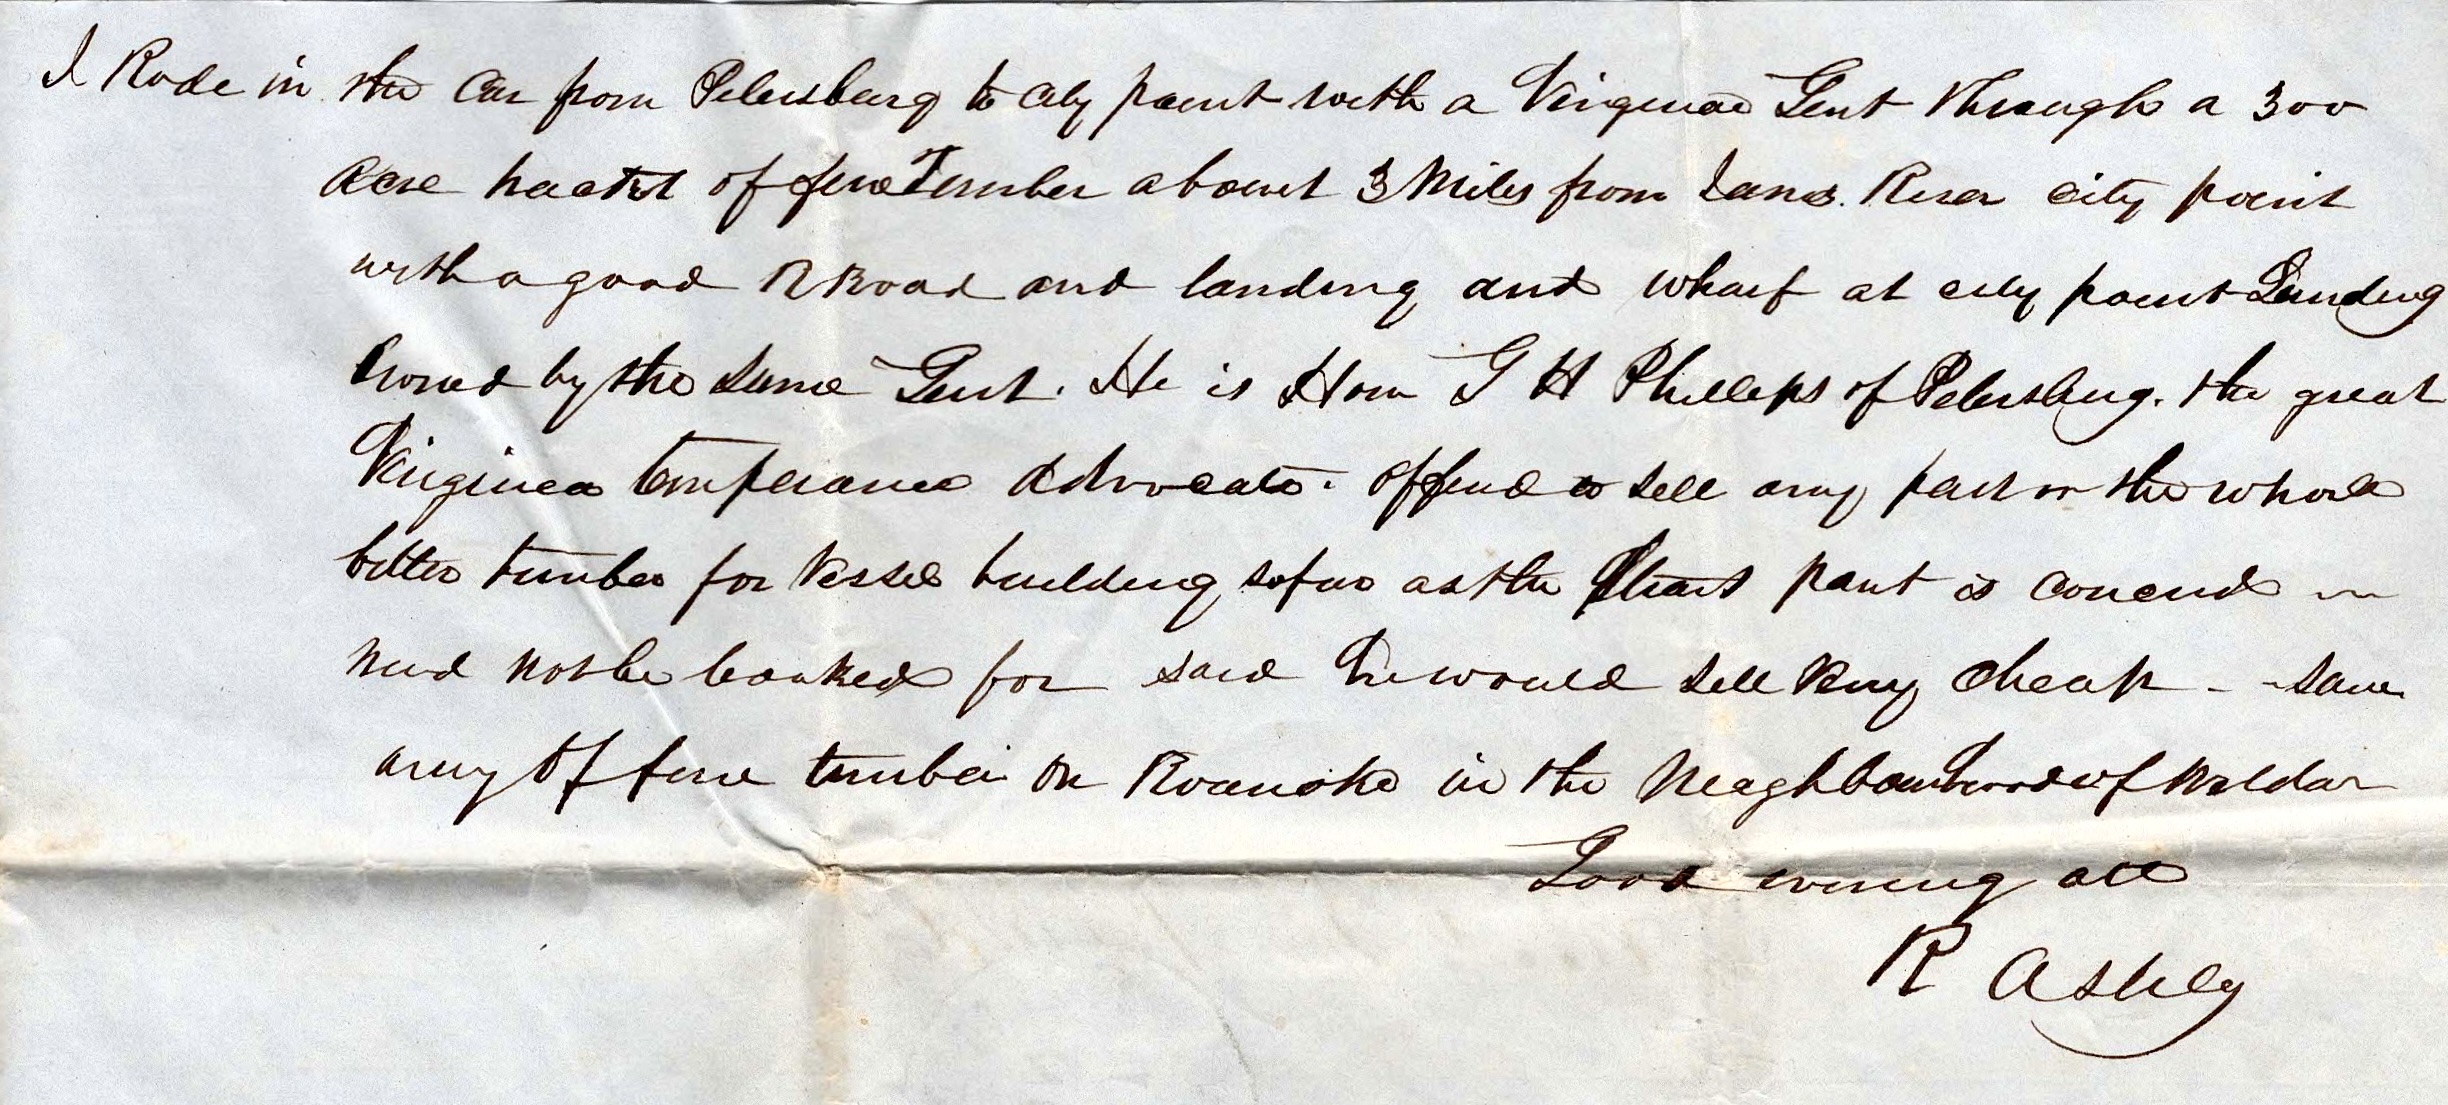 I Rode in the Car from Petersburg to City point with a Virginia Gent through a 300
Acre of fine Timber about 3 Miles from James River city point
with a good R Road and landing and wharf at city point Landing
owned by the same Gent. He is Hon G H Phillips of Petersburg. the great
Virginia temperance advocate. offered to sell any part or the whole
better timber for Vessel building so far as the part is concernd
need not be looked for said he would sell Very Cheap - - saw
any of fine timber on Roanoke in the Neaghbourhood of Weldon
Good evening all
R Ashley